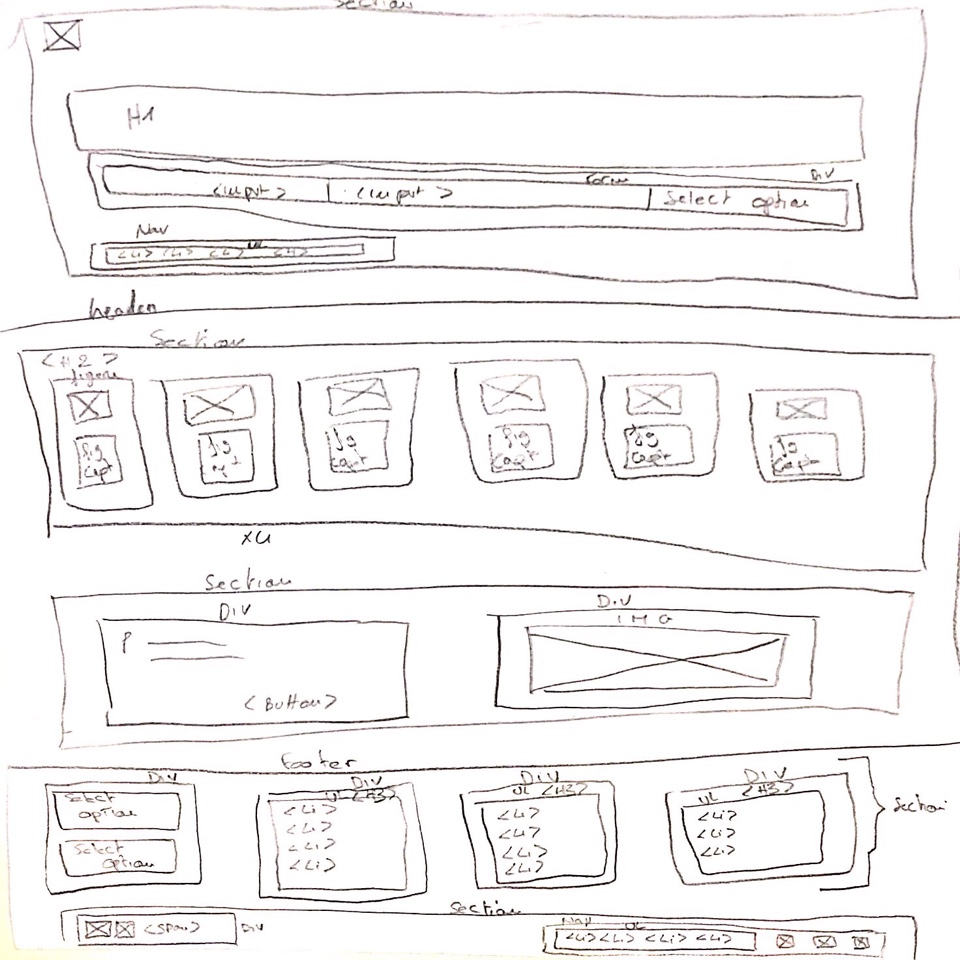 Section
H1
<input> <input> Form Select option Div
Nav
UL
<Li> <Li> <Li> <Li>
header
Section
<H2>
figure
fig capt
fig capt
fig capt
fig capt
fig capt
Section
Div
Div
P
IMG
<Button>
footer
Div
Select option
Select option
Div
UL <H3>
<Li>
<Li>
<Li>
<Li>
Div
UL <H3>
<Li>
<Li>
<Li>
<Li>
Div
UL <H3>
<Li>
<Li>
<Li>
Section
Section
<span> Div
Nav UL
<Li> <Li> <Li> <Li>